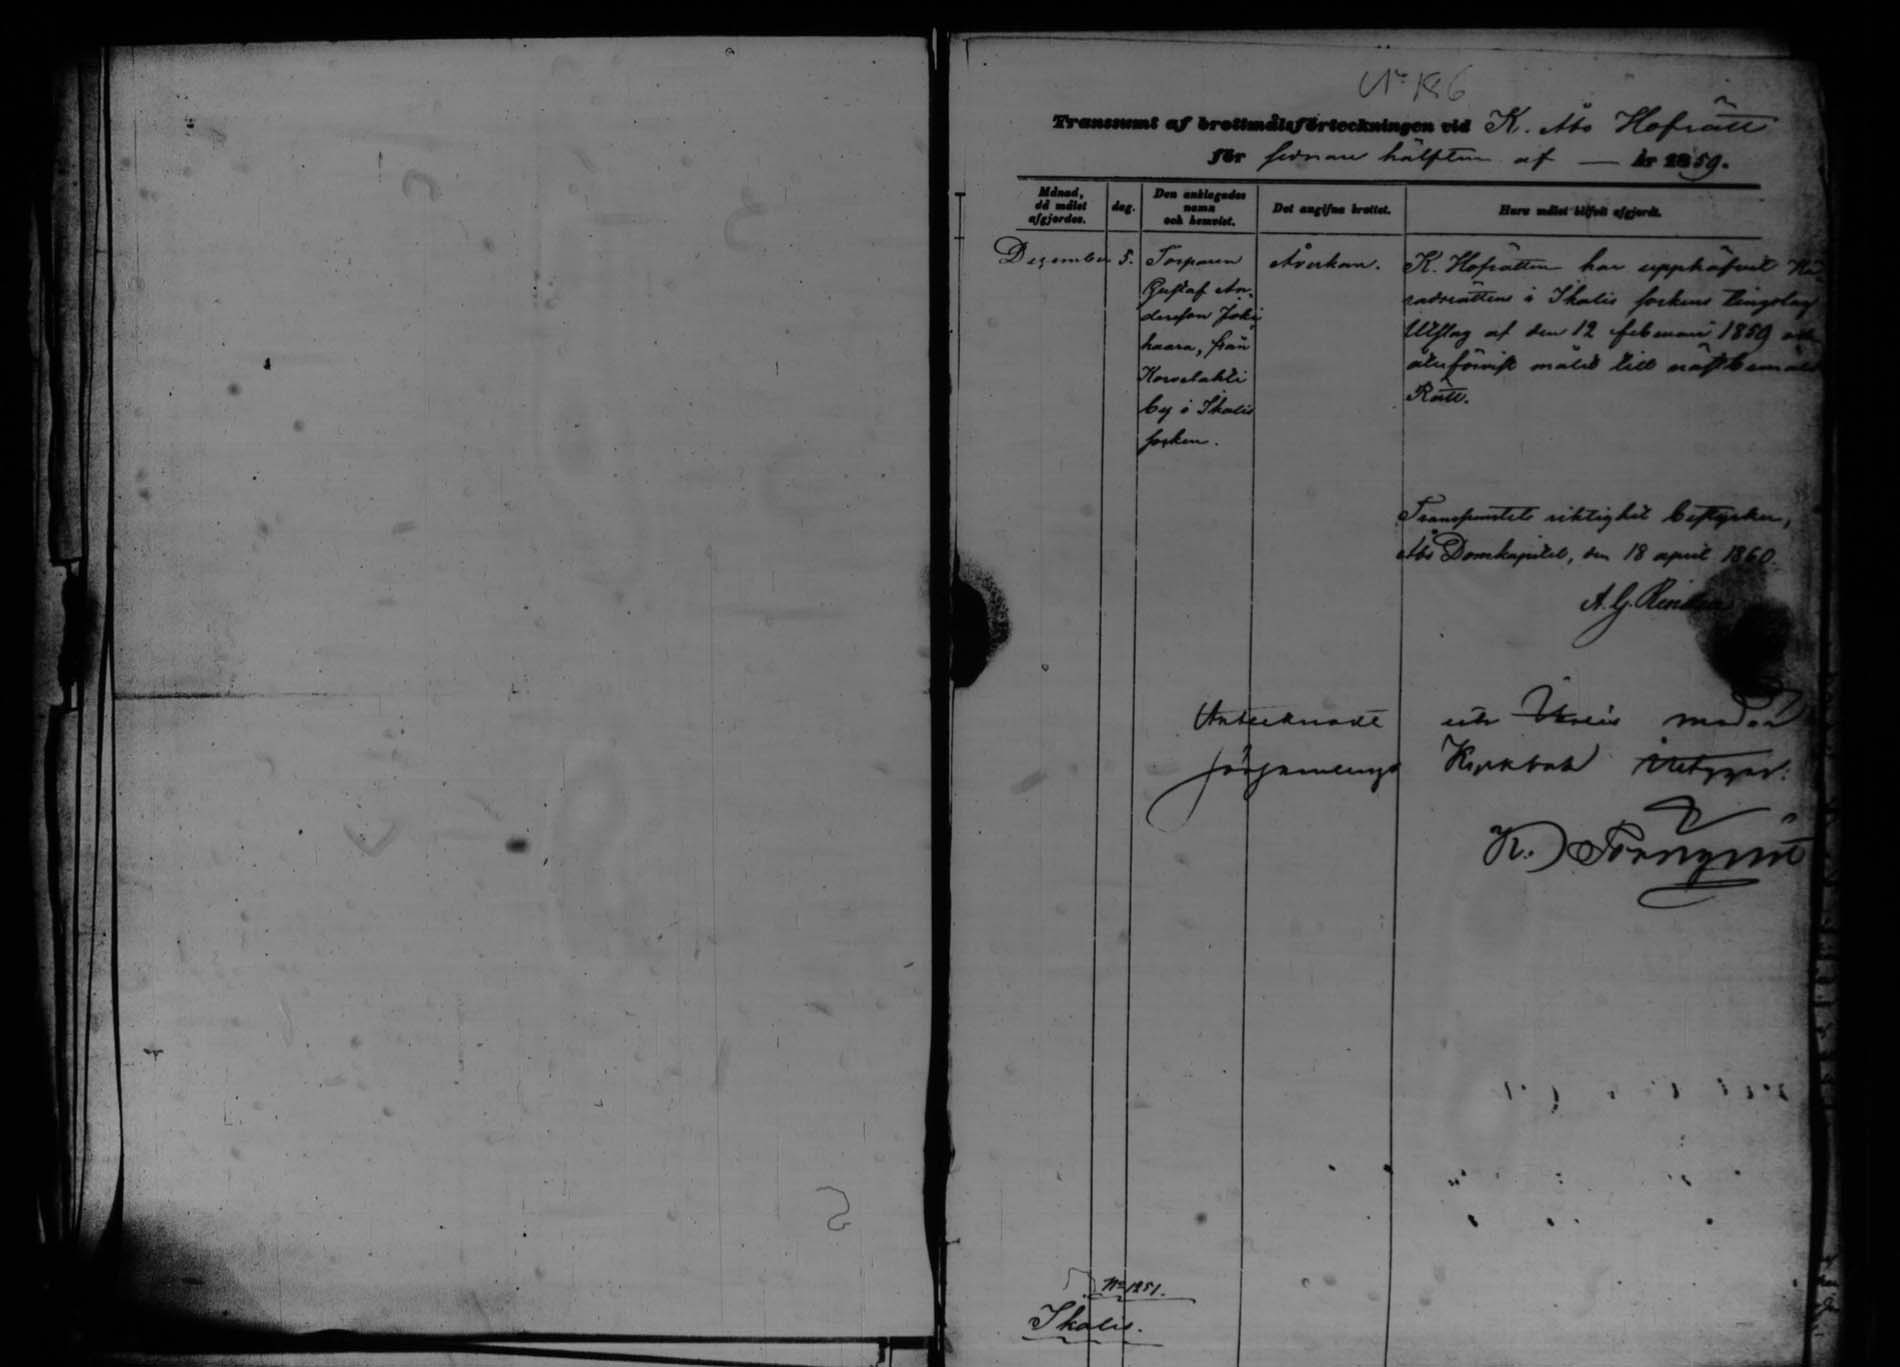 N:o 186
Transsumt af brottmålsförteckningen vid K. Åbo Hofrätt
för sednare hälften af — år 1859.
Månad, då målet afgjordes.
dag.
Den anklagades namn och hemvist.
Det angifna brottet.
Huru målet blifvit afgjordt.
Dezember 5.
Torparen
Gustaf An-
dersson Joki
haara, från
Kovelahti
by i Ikalis
socken.
Åverkan.
K. Hofrätten har upphäfvit Hä-
radsrättens i Ikalis sockens tingslag
Utslag af den 12 februari 1859 och
återförvist målet till näst bemälte
Rätt.
Transsumtets riktighet bestyrker,
Åbo Domkapitel, den 18 april 1860.
A. G.
Antecknadt uti
församlings Kyrkbok
K. Törnqvist
N:o 1251.
Ikalis.